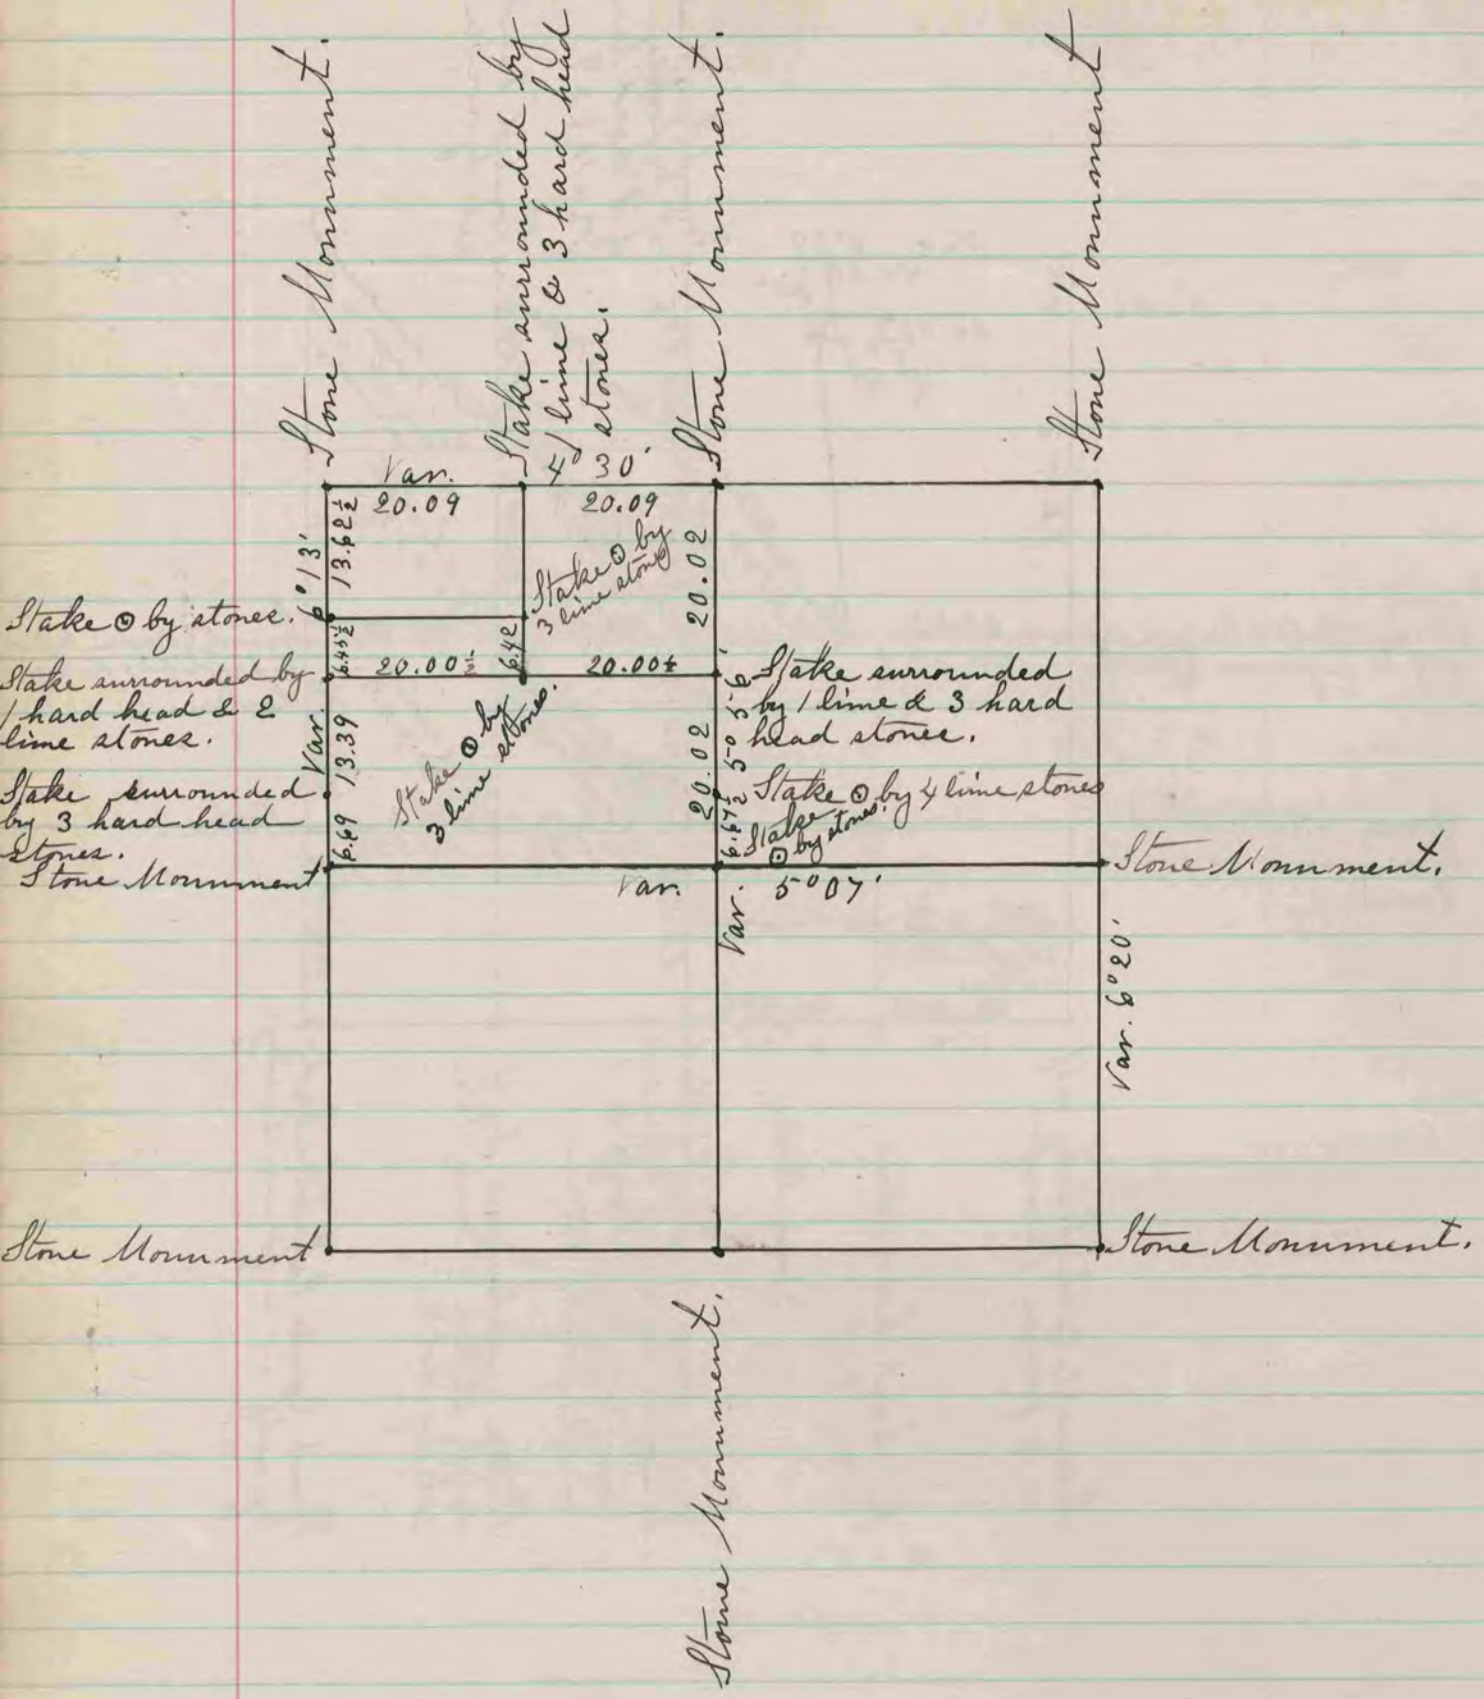 Stone Monument.
Stake surrounded by
4 lime & 3 hard head
stones.
Stone Monument.
Stone Monument
Var.
4° 30'
20.09
20.09
6° 13'
13.62½
20.02
Stake ⊙ by
3 lime stone
Stake ⊙ by stones.
6.45½
20.00½
6.42
20.00½
Stake surrounded by
1 hard head & 2
lime stones.
Stake surrounded
by 1 lime & 3 hard
head stones.
Var.
13.39
Stake ⊙ by
3 lime stones.
20.02
5° 56'
Stake surrounded
by 3 hard head
stones.
6.69
6.67½
Stake ⊙ by 4 lime stones
Stake
⊙ by stones.
Stone Monument
Stone Monument.
Var. 5° 07'
Var.
Var. 6° 20'
Stone Monument
Stone Monument.
Stone Monument.